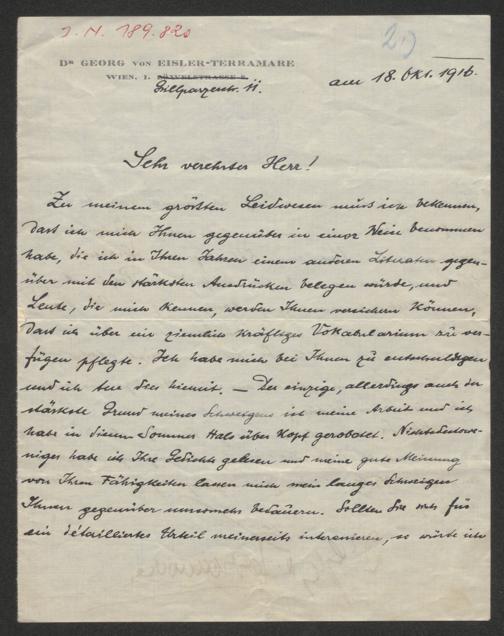 I. N. 189.820
2)
DR GEORG VON EISLER-TERRAMARE
WIEN, I.
Grillparzerstr. 11.
am 18. Okt. 1916.
Sehr verehrter Herr!
Zu meinem größten Leidwesen muss ich bekennen,
dass ich mich Ihnen gegenüber in einer Weise benommen
habe, die ich in Ihren Jahren einem anderen Literaten gegen-
über mit den stärksten Ausdrücken belegen würde, und
Leute, die mich kennen, werden Ihnen versichern können,
dass ich über ein ziemlich kräftiges Vokabularium zu ver-
fügen pflegte. Ich habe mich bei Ihnen zu entschuldigen
und ich tue dies hiemit. — Der einzige, allerdings auch der
stärkste Grund meines Schweigens ist meine Arbeit und ich
habe in diesem Sommer Hals über Kopf gerobotet. Nichtsdestowe-
niger habe ich Ihre Gedichte gelesen und meine gute Meinung
von Ihren Fähigkeiten lassen mich mein langes Schweigen
Ihnen gegenüber umsomehr bedauern. Sollten Sie sich für
ein détailliertes Urteil meinerseits interessieren, so würde ich